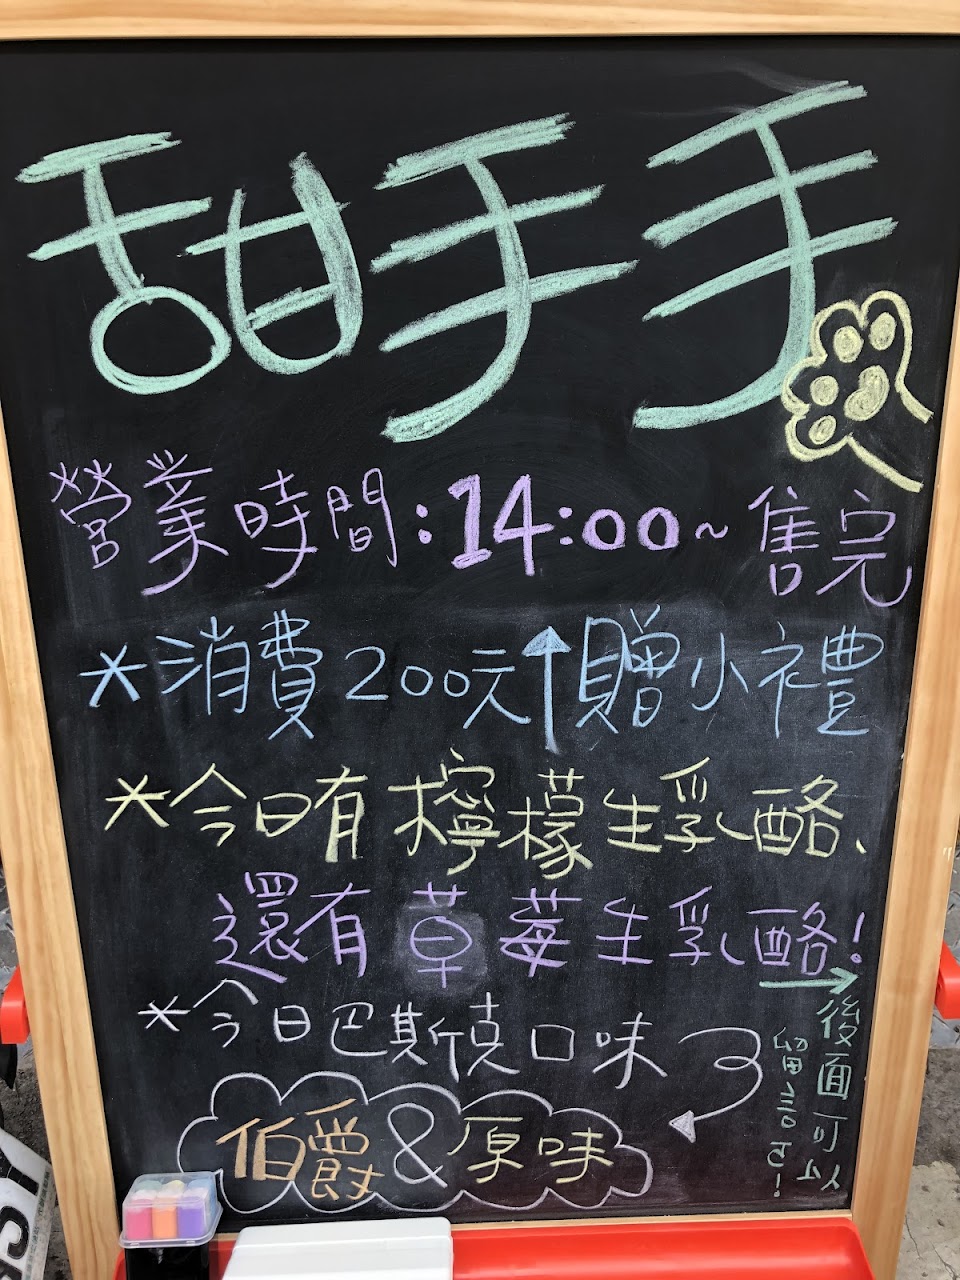 甜手手
營業時間:14:00~售完
*消費200元↑贈小禮
*今日有檸檬生乳酪、
還有草莓生乳酪!
*今日巴斯克口味
伯爵&原味
→後面可以
留言ㄛ!